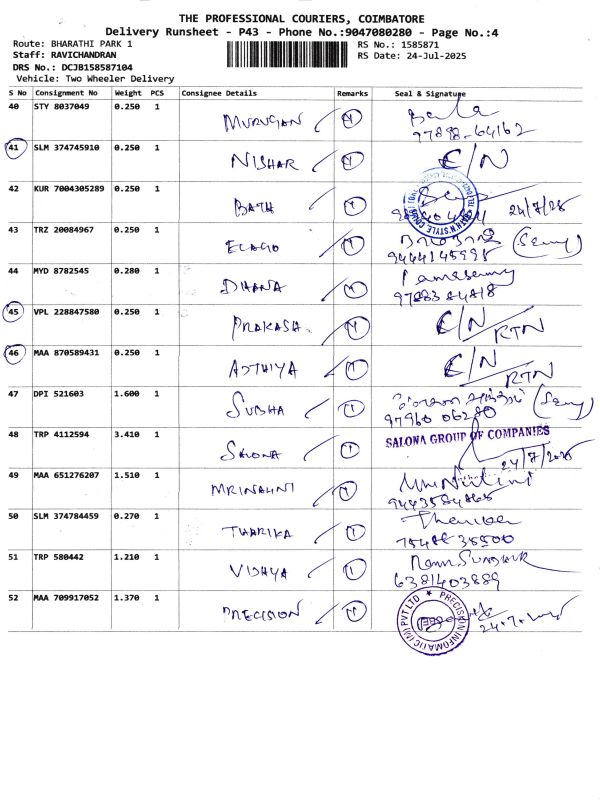 THE PROFESSIONAL COURIERS, COIMBATORE
Delivery Runsheet - P43 - Phone No.:9047080280 - Page No.:4
Route: BHARATHI PARK 1 RS No.: 1585871
Staff: RAVICHANDRAN RS Date: 24-Jul-2025
DRS No.: DCJB158587104
Vehicle: Two Wheeler Delivery
S No Consignment No Weight PCS Consignee Details Remarks Seal & Signature
40 STY 8037049 0.250 1 MURUGAN 1 Bala
97898-64162
41 SLM 374745910 0.250 1 NISHAR 1 C/N
42 KUR 7004305289 0.250 1 BATH 1 24/7/25
43 TRZ 20084967 0.250 1 1
9444145998
44 MYD 8782545 0.280 1 DHANA 1 Ramasamy
45 VPL 228847580 0.250 1 PRAKASA. 1 C/N
RTN
46 MAA 870589431 0.250 1 ADTHIYA 1 C/N
RTN
47 DPI 521603 1.600 1 SUBHA 1
97960 06280
48 TRP 4112594 3.410 1 SALONA 1 SALONA GROUP OF COMPANIES
24/7/2025
49 MAA 651276207 1.510 1 MRINALINI 1
50 SLM 374784459 0.270 1 THARIKA 1
51 TRP 580442 1.210 1 VIDHYA 1
6381403889
52 MAA 709917052 1.370 1 PRECISION 1 PRECISION INFOMATIC (M) PVT LTD